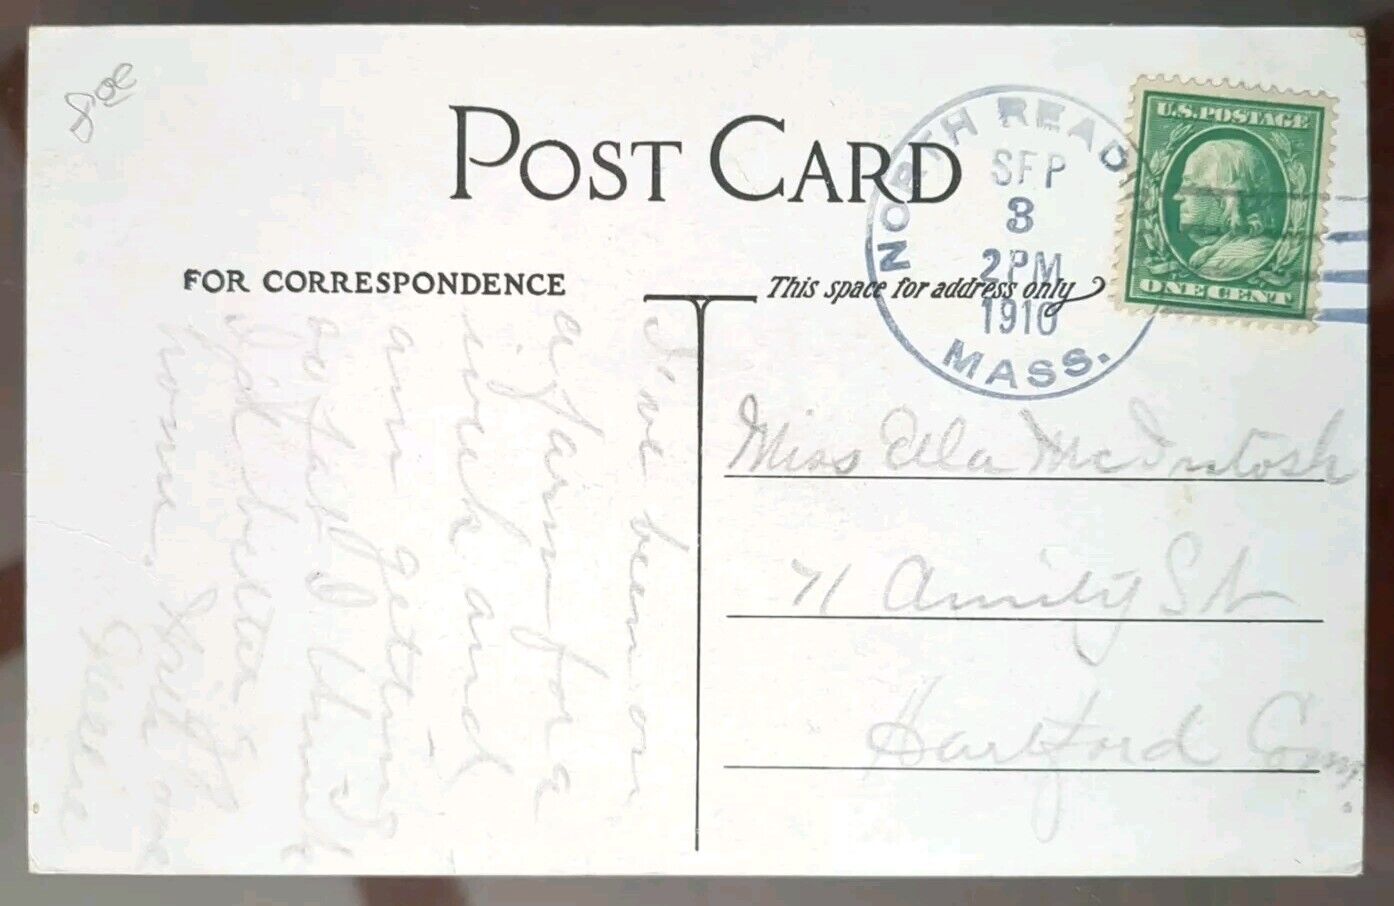 POST CARD
FOR CORRESPONDENCE
This space for address only
NORTH READ
MASS.
SEP
3
2 PM
1910
U.S. POSTAGE
ONE CENT
Miss Ella McIntosh
71 Amity St
Hartford Conn.
I've been on
a farm for a
week and
am getting
so fat I think
I'd better
home.